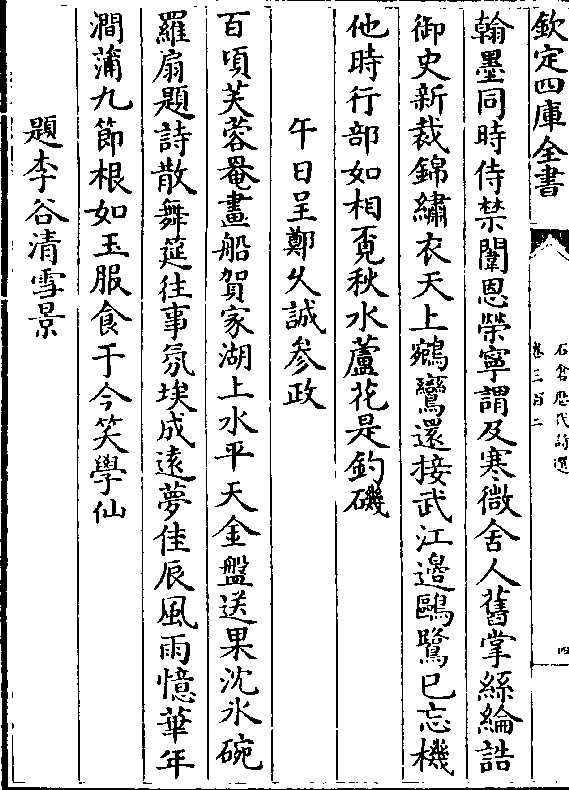 欽定四庫全書
石倉歷代詩選
卷三百二
四
翰墨同時侍禁闈恩榮寧謂及寒微舍人舊掌絲綸誥
御史新裁錦繡衣天上鵷鸞還接武江邊鷗鷺已忘機
他時行部如相覓秋水蘆花是釣磯
午日呈鄭久誠參政
百頃芙蓉罨畫船賀家湖上水平天金盤送果沈氷碗
羅扇題詩散舞筵往事氛埃成遠夢佳辰風雨憶華年
澗蒲九節根如玉服食于今笑學仙
題李谷清雪景